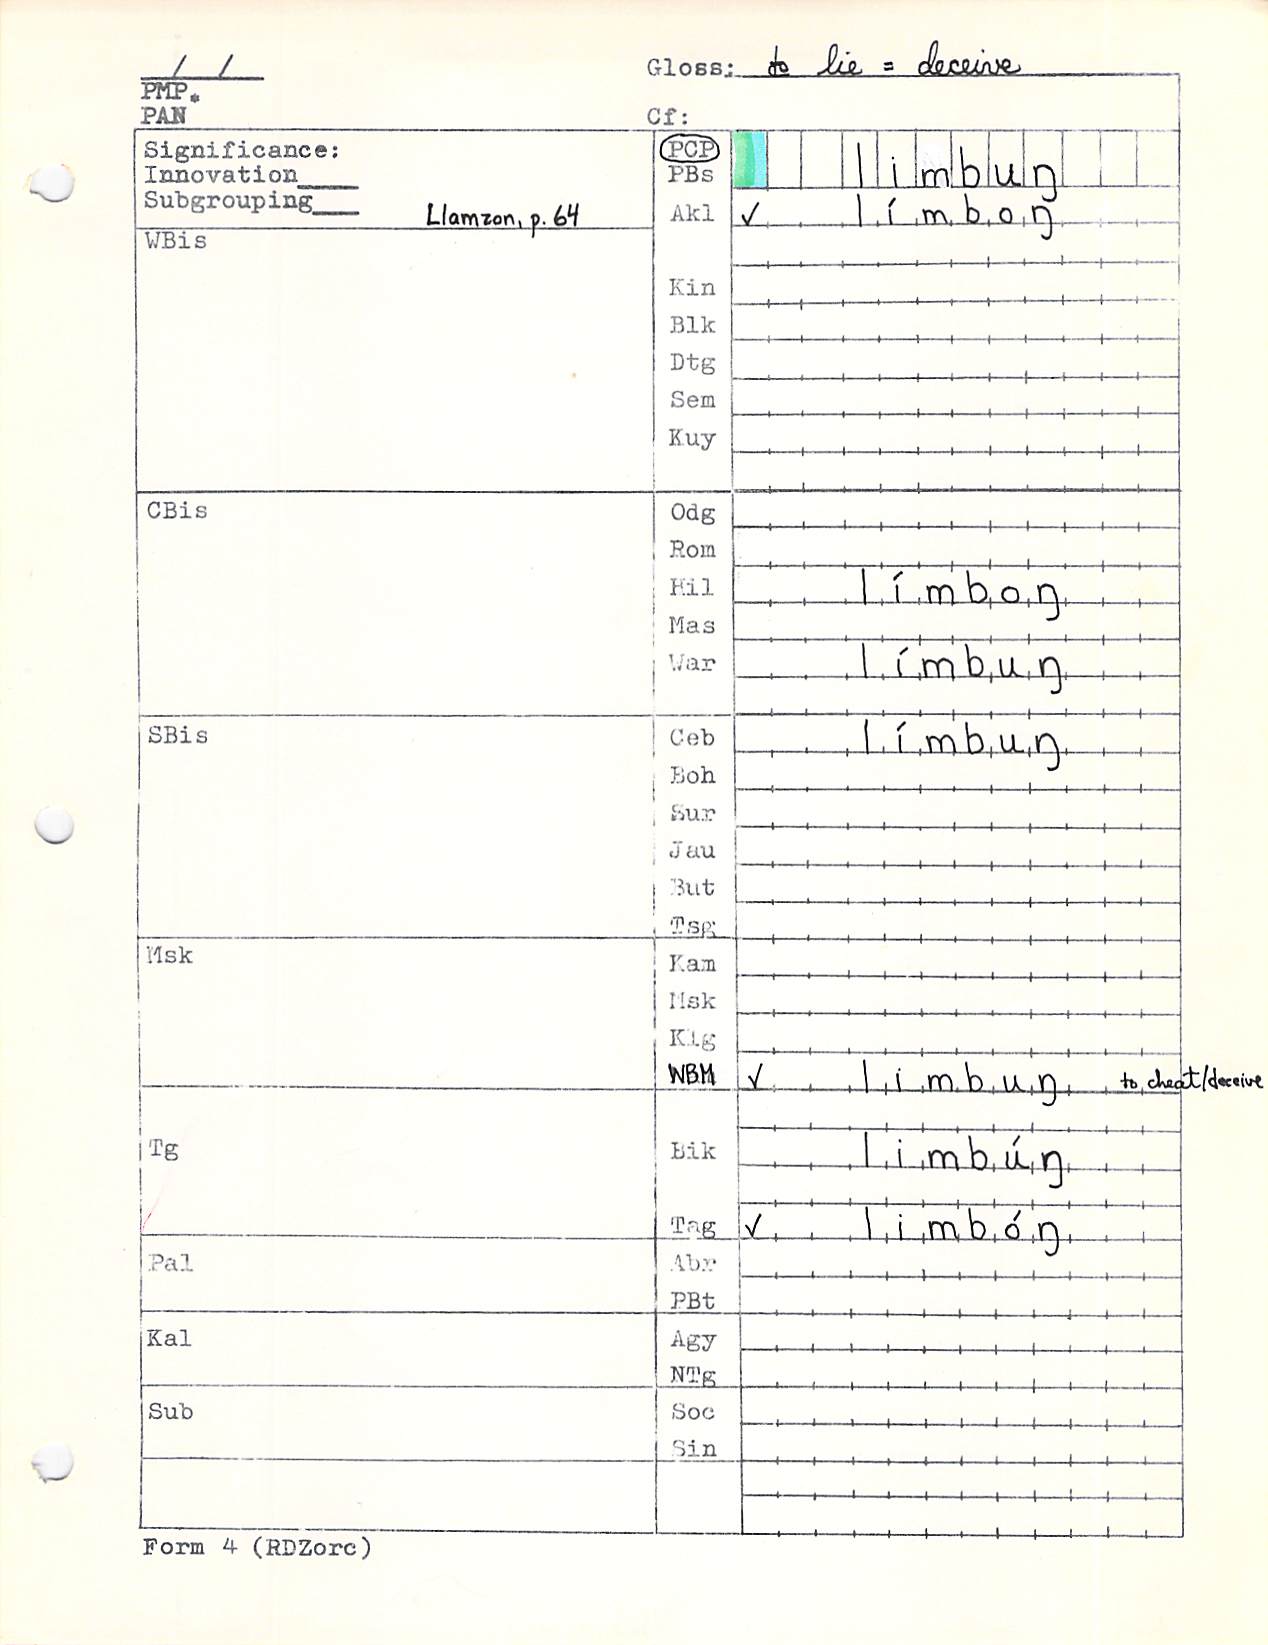 / /
Gloss: to lie = deceive
PMP.
PAN
Cf:
Significance:
Innovation
Subgrouping
Llamzon, p. 64
PCP
PBs
limbuŋ
Akl ✓ límboŋ
WBis
Kin
Blk
Dtg
Sem
Kuy
CBis
Odg
Rom
Hil límboŋ
Mas
War límbuŋ
SBis
Ceb límbuŋ
Boh
Sur
Jau
But
Tsg
Msk
Kam
Msk
Klg
WBM ✓ limbuŋ to cheat/deceive
Tg
Bik limbúŋ
Tag ✓ limbóŋ
Pal
Abr
PBt
Kal
Agy
NTg
Sub
Soc
Sin
Form 4 (RDZorc)